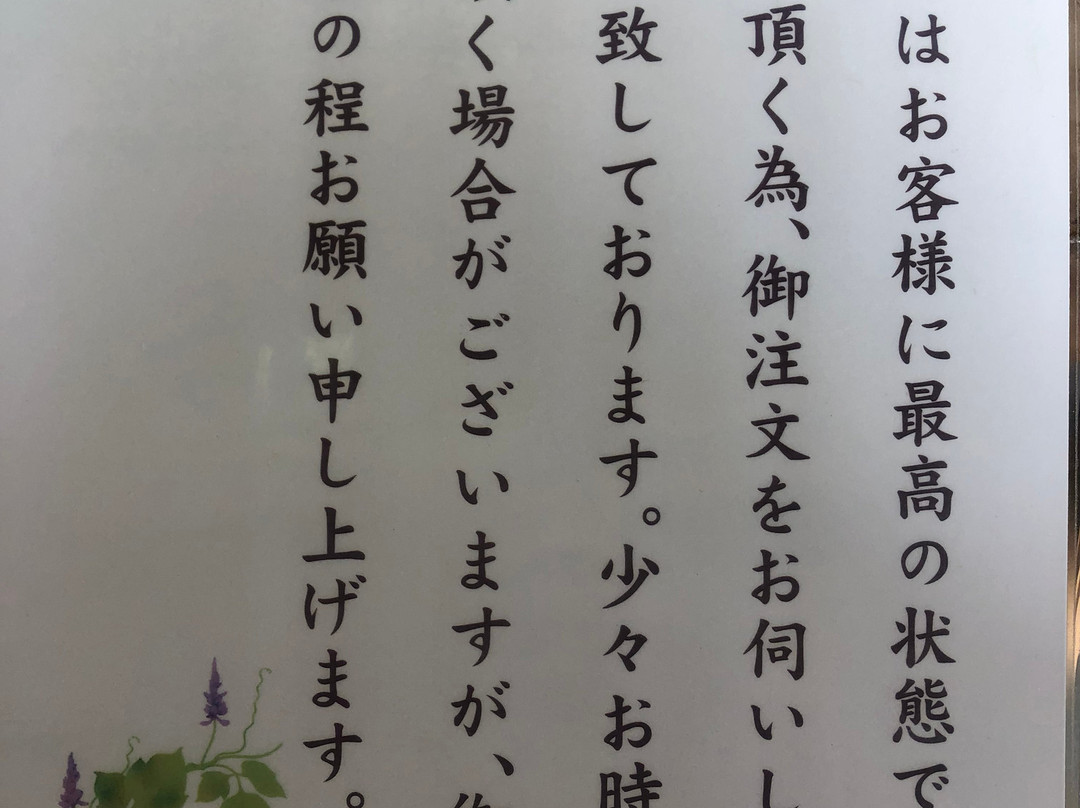 はお客様に最高の状態で
頂く為、御注文をお伺いし
致しております。少々お時
く場合がございますが、
の程お願い申し上げます。